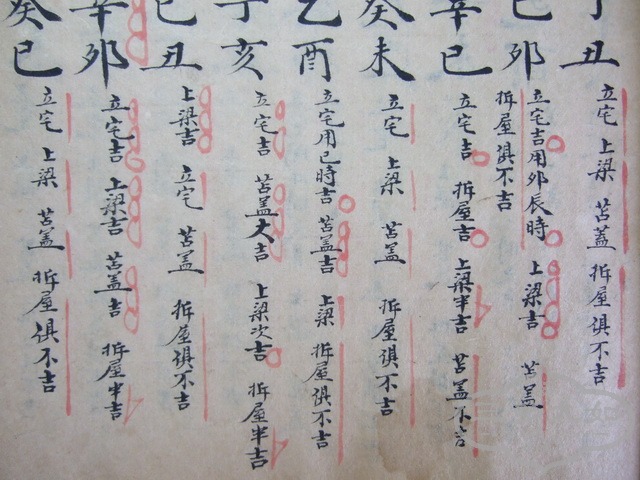 丁丑 立宅 上梁 苫蓋 拆屋俱不吉
己卯 立宅吉用卯辰時 上梁吉 苫蓋
拆屋俱不吉
辛巳 立宅吉 拆屋吉 上梁半吉 苫蓋不吉
癸未 立宅 上梁 苫蓋 拆屋俱不吉
乙酉 立宅用巳時吉 苫蓋吉 上梁 拆屋俱不吉
丁亥 立宅吉 苫蓋大吉 上梁次吉 拆屋半吉
己丑 上梁吉 立宅 苫蓋 拆屋俱不吉
辛卯 立宅吉 上梁吉 苫蓋吉 拆屋半吉
癸巳 立宅 上梁 苫蓋 拆屋俱不吉